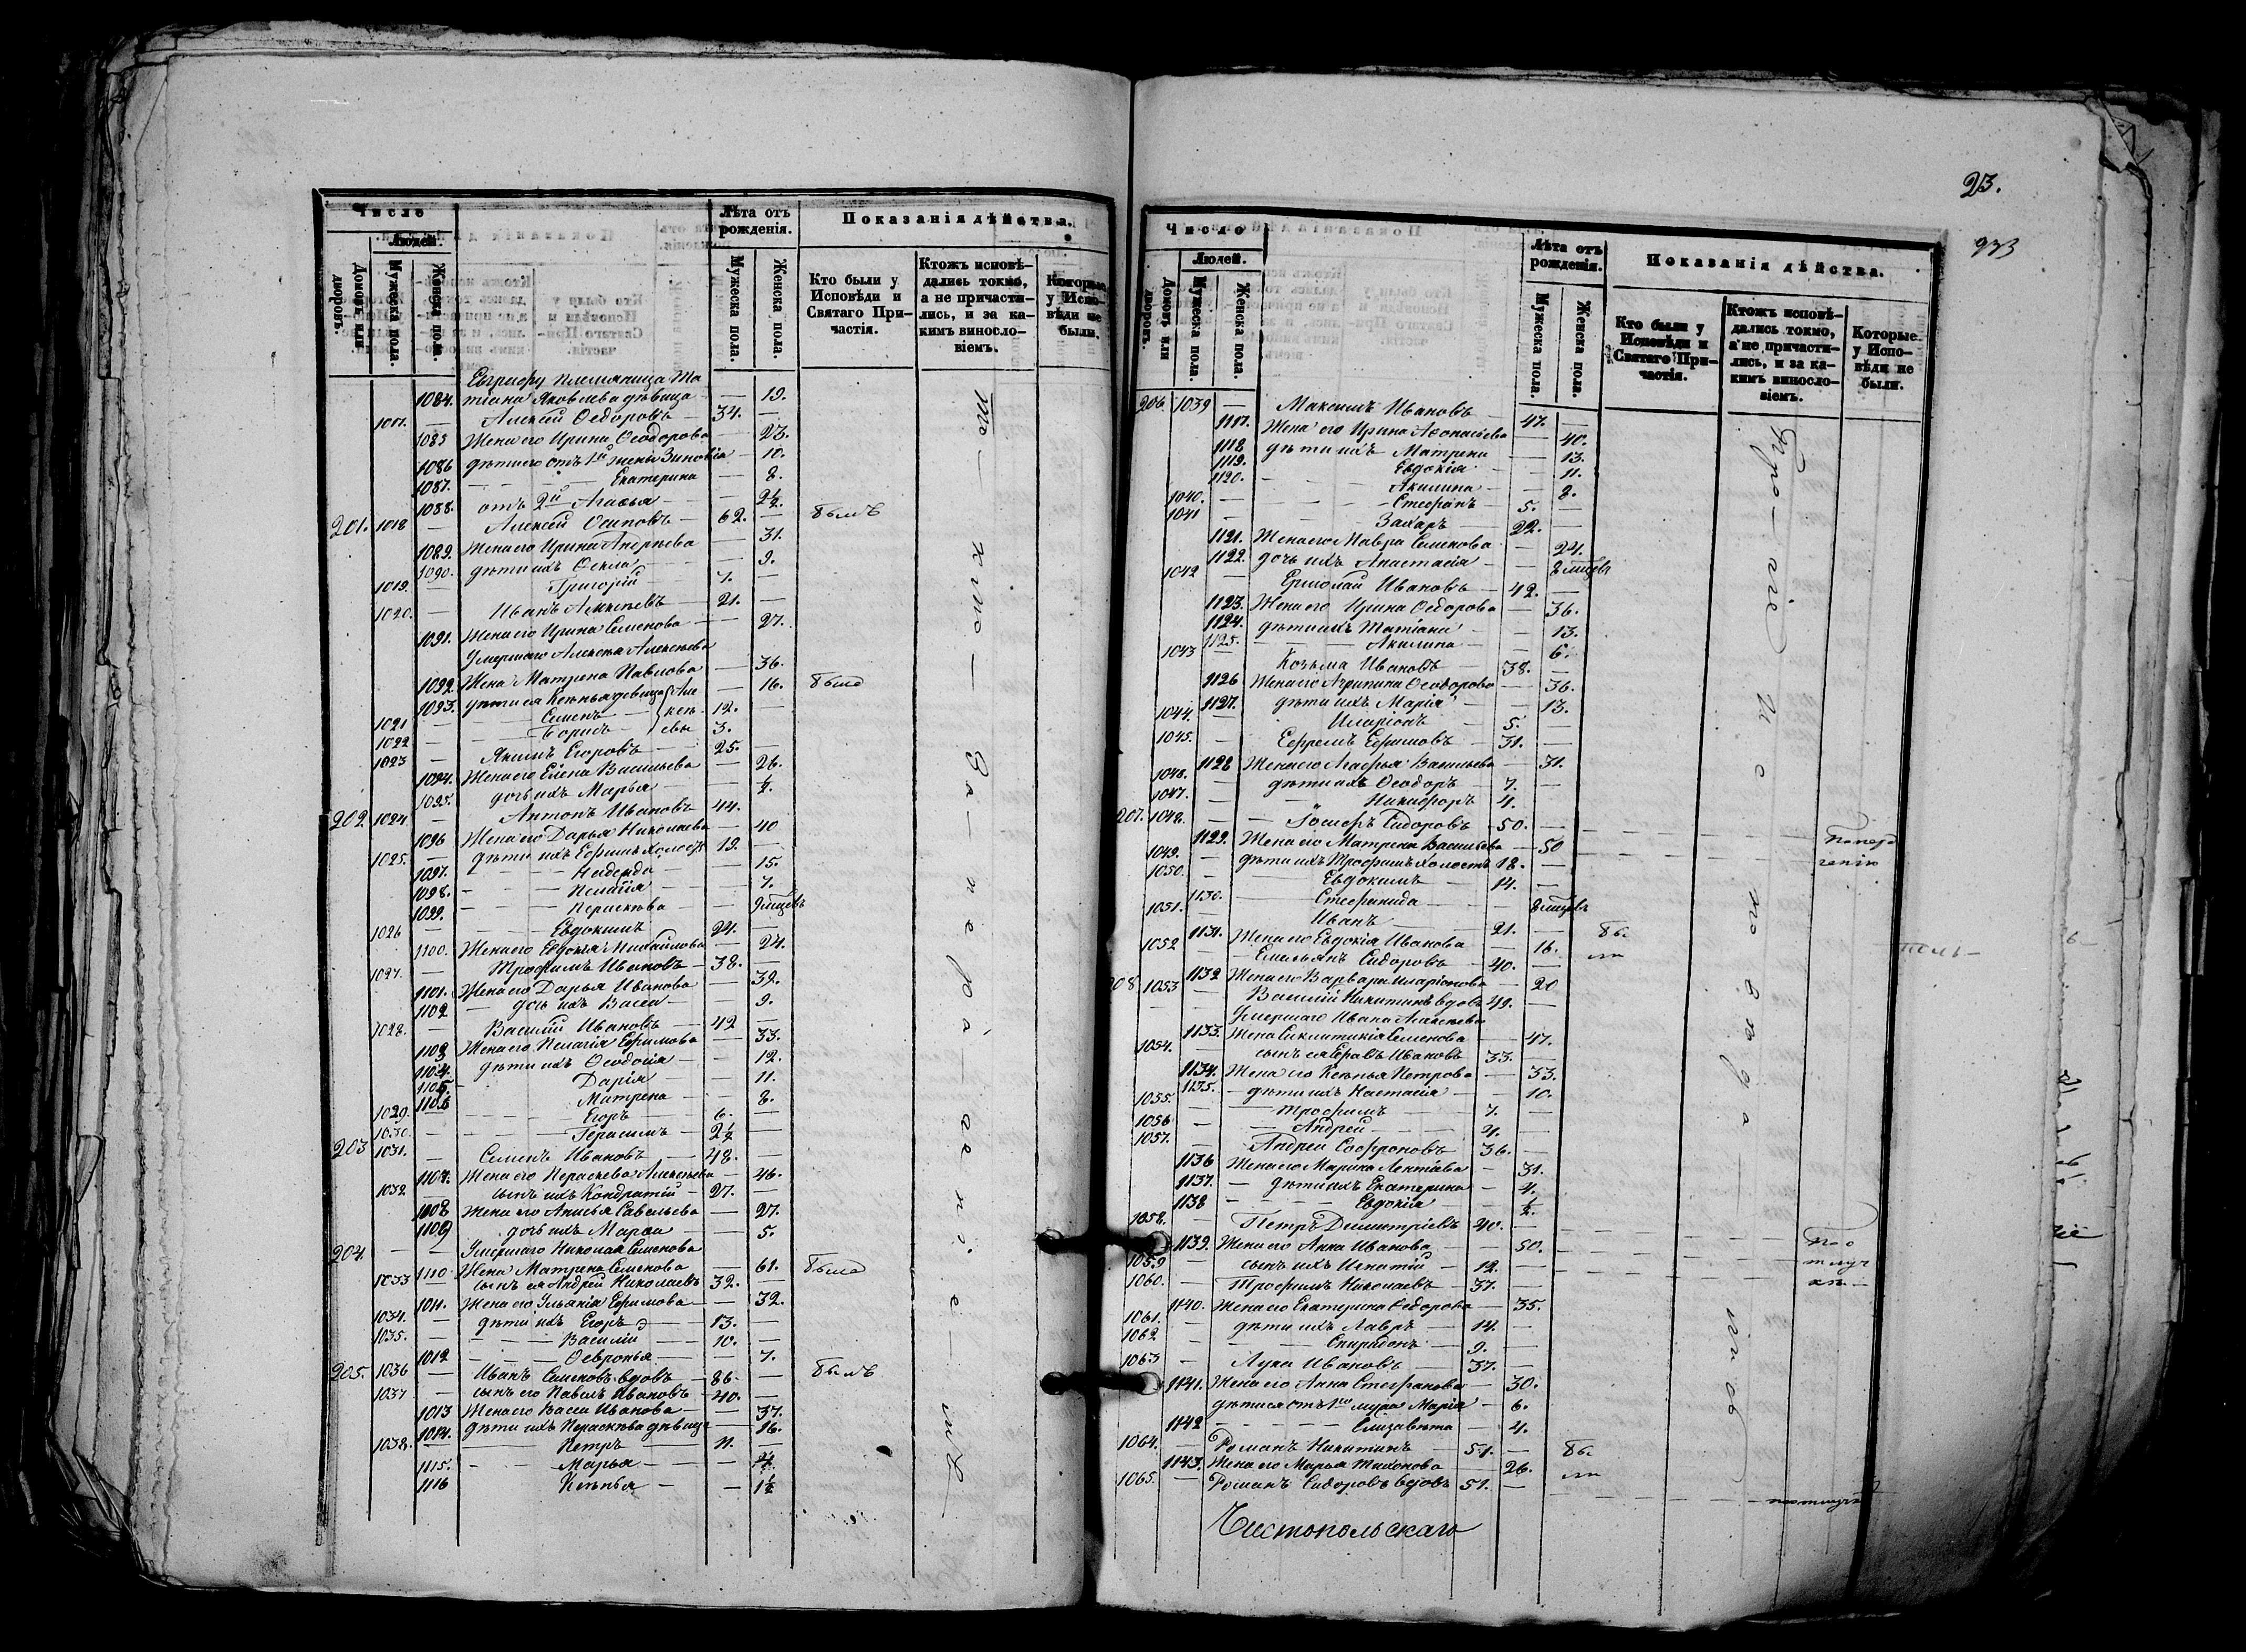 Число
Людей.
Домовъ или дворовъ.
Мужеска пола.
Женска пола.
Лѣта отъ рожденія.
Мужеска пола.
Женска пола.
Показанія дѣйства.
Кто были у Исповѣди и Святаго Причастія.
Ктожъ исповѣдались токмо, а не причастились, и за какимъ винословіемъ.
Которые у Исповѣди не были.
племянница Та
1084. тіана Яковлева дѣвица — 19.
1017. — Алексѣй Ѳедоровъ — 34. —
1085 Жена его Ирина Ѳеодорова — 23.
1086 дѣти его отъ 1й жены Зиновія — 10.
1087. — — — Екатерина — — 8.
1088. отъ 2й — Агаѳья — — 2½.
201. 1018 — Алексѣй Осиповъ — 62. — былъ
1089. Жена его Ирина Андреева — 31.
1090. дѣти ихъ Ѳекла — — 9.
1019. — Григорій — 7. —
1020. — Иванъ Алексѣевъ — 21. —
1091. Жена его Ирина Семенова — 27.
Умершаго Алексѣя Алексѣева
1092. Жена Матрена Павлова — 36.
1093. дѣти ея Ксенья девица — 16. была
1021 — — Семенъ — 12. —
1022 — — Борисъ — 3.
Алексѣевы
1023 — Якимъ Егоровъ — 25. —
1094. Жена его Елена Васильева — 26.
1095. дочь ихъ Марья — — ½.
202 1024 — Антонъ Ивановъ — 44. —
1096 Жена его Дарья Николаева — 40
1025. — дѣти ихъ Ефимъ холостъ 19. —
1097. — — — Надежда — — 15.
1098. — — — Пелагія — — 7.
1099. — — — Параскѣва — — 9 мцевъ
1026 — — Евдокимъ — 24. —
1100. Жена его Евдокія Михайлова — 24.
1027. — Трофимъ Ивановъ — 38. —
1101. Жена его Дарья Иванова — 39.
1102 — дочь ихъ Васса — — 9.
1028. — Василій Ивановъ — 42 —
1103 Жена его Пелагія Ефимова — 33.
1104. дѣти ихъ Ѳеодосія — — 12.
1105 — Дарія — — 11.
1106 Матрена — — 8.
1029. — — — Егоръ — 6. —
1030. — — — Герасимъ — 2½ —
203 1031. — Семенъ Ивановъ — 48. —
1107. Жена его Параскева Алексѣева — 46.
1032. — сынъ ихъ Кондратій — 27. —
1108 Жена его Анисья Савельева — 27.
1109 дочь ихъ Марѳа — 5.
204. — — Умершаго Николая Семенова
1110 Жена Матрена Семенова — 61. была
1033 — сынъ ея Андрей Николаевъ 32. —
1011. Жена его Ульянія Ефимова — 32.
1034. — дѣти ихъ Егоръ — 13. —
1035. — — — Василій — 10. —
1012 — — — Ѳевронья — — 7.
205. 1036 — Иванъ Семеновъ вдовъ — 86. — былъ
1037 — сынъ его Павелъ Ивановъ — 40. —
1013 Жена его Васса Иванова — 37.
1014. дѣти ихъ Параскѣва дѣвица — 16.
1038. — — Петръ — 11. —
1115. — — Марья — — 4.
1116 Ксенья — — 1½
23.
973
Число
Людей.
Домовъ или дворовъ.
Мужеска пола.
Женска пола.
Лѣта отъ рожденія.
Мужеска пола.
Женска пола.
Показанія дѣйства.
Кто были у Исповѣди и Святаго Причастія.
Ктожъ исповѣдались токмо, а не причастились, и за какимъ винословіемъ.
Которые у Исповѣди не были.
206 1039 — Максимъ Ивановъ — 47. —
1117. Жена его Ирина Аѳонасьева — 40.
1118 дѣти ихъ Матрена — 13.
1119. Евдокія — 11.
1120. — — Акилина — — 8.
1040. — — Стефанъ — 5. —
1041 — Захаръ — 22. —
1121. Жена его Мавра Семенова — 24.
1122. дочь ихъ Анастасія — 8 мцевъ
1042 — Ермолай Ивановъ — 42. —
1123. Жена его Ирина Ѳедорова — 36.
1124. дѣти ихъ Татіана — — 13.
1125. — — Акилина — — 6.
1043 — Козьма Ивановъ — 38. —
1126 Жена его Агрипина Ѳеодорова — 36.
1127. дѣти ихъ Марія — — 13.
1044. — Иларіонъ — 5. —
1045. — Ефремъ Ефимовъ — 31. —
1128 Жена его Агафья Васильева — 31.
1046. — дѣти ихъ Ѳеодоръ — 7. —
1047. — Никифоръ 4.
207. 1048. — Іосифъ Сидоровъ — 50. —
1129. Жена его Матрена Васильева — 50
1049. — дѣти ихъ Трофимъ холостъ 18. —
1050. — Евдокимъ — 14. —
1130. Стефанида — — 8 мцевъ
1051. — Иванъ — 21. —
1131. Жена его Евдокія Иванова — 16.
1052 — Емельянъ Сидоровъ — 40. —
1132 Жена его Варвара Иларіонова — 20
208 1053 — Василій Никитинъ вдовъ 49. —
Умершаго Ивана Алексѣева
1133. Жена Синклитикія Семенова — 47.
1054. — сынъ ея Ивановъ 33. —
1134. Жена его Ксенья Петрова — 33.
1135. — дѣти ихъ Настасія — — 10.
1055. — Трофимъ — 7. —
1056 — Андрей — 4. —
1057. — Андрей Софроновъ — 36. —
1136 Жена его Марина — 31.
1137. — дѣти ихъ Екатерина — 4.
1138 — — Евдокія — ½.
1058. — Петръ Димитріевъ 40. —
1139. Жена его Анна Иванова — 50.
1059 — сынъ ихъ Игнатій — 12. —
1060. — Трофимъ Николаевъ — 37. —
1140. Жена его Екатерина Ѳедорова — 35.
1061. — дѣти ихъ Лавръ — 14. —
1062 — — Спиридонъ — 9. —
1063 — Лука Ивановъ — 37. —
1141. Жена его Анна Стефанова — 30.
дѣти ея отъ 1го мужа Марія — 6.
1142 — — — Елизавета — 4.
1064. — Романъ Никитинъ — 51. —
1143. Жена его Марья Тихонова — 26.
1065. — Романъ Сидоровъ вдовъ 51. —
Чистопольскаго